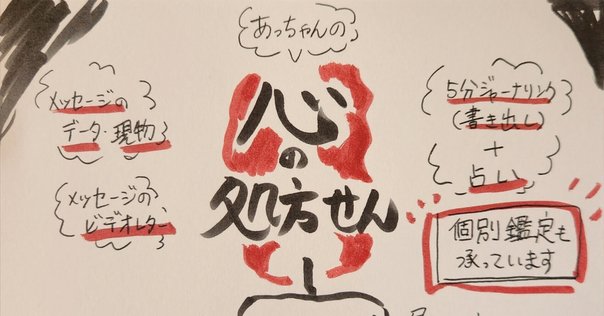 あっちゃんの
心
の
処方せん
メッセージの
データ・現物
メッセージの
ビデオレター
5分ジャーナリング
(書き出し)
+
占い
個別鑑定も
承っています